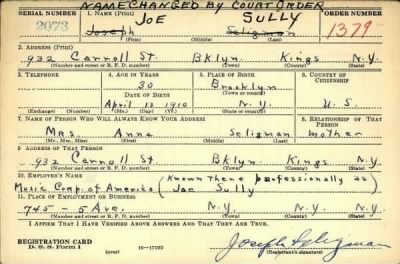 NAME CHANGED BY COURT ORDER
SERIAL NUMBER 1. NAME (Print) ORDER NUMBER
JOE SULLY
2073 Joseph Seligman 1379
(First) (Middle) (Last)
2. ADDRESS (Print)
932 Carroll St. Bklyn Kings N.Y.
(Number and street or R. F. D. number) (Town) (County) (State)
3. TELEPHONE 4. AGE IN YEARS 5. PLACE OF BIRTH 6. COUNTRY OF CITIZENSHIP
30 Brooklyn
DATE OF BIRTH (Town or county)
April 13 1910 N.Y. U.S.
(Exchange) (Number) (Mo.) (Day) (Yr.) (State or country)
7. NAME OF PERSON WHO WILL ALWAYS KNOW YOUR ADDRESS 8. RELATIONSHIP OF THAT PERSON
Mrs. Anna Seligman mother
(Mr., Mrs., Miss) (First) (Middle) (Last)
9. ADDRESS OF THAT PERSON
932 Carroll St. Bklyn Kings N.Y.
(Number and street or R. F. D. number) (Town) (County) (State)
10. EMPLOYER'S NAME (Known there professionally as
Music Corp. of America Joe Sully)
11. PLACE OF EMPLOYMENT OR BUSINESS
745 - 5 Ave. N.Y. N.Y.
(Number and street or R. F. D. number) (Town) (County) (State)
I AFFIRM THAT I HAVE VERIFIED ABOVE ANSWERS AND THAT THEY ARE TRUE.
REGISTRATION CARD
D. S. S. Form 1 (over) 16—17105
Joseph Seligman
(Registrant's signature)